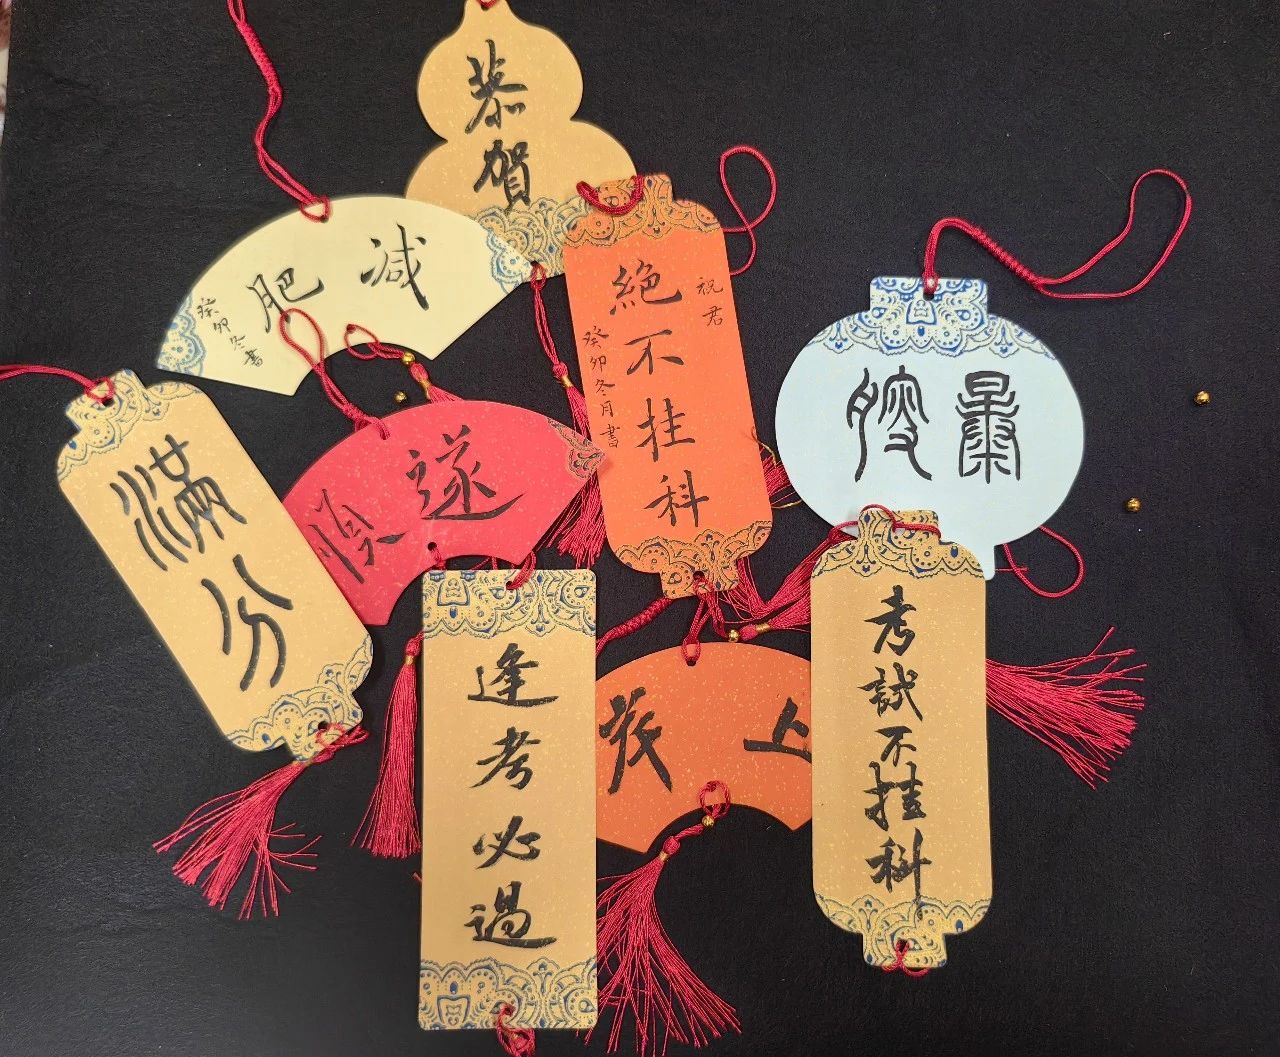 恭賀
減肥
癸卯冬書
祝君
絕不挂科
癸卯冬月書
暴膄
滿分
遂順
逢考必過
上
考試不挂科